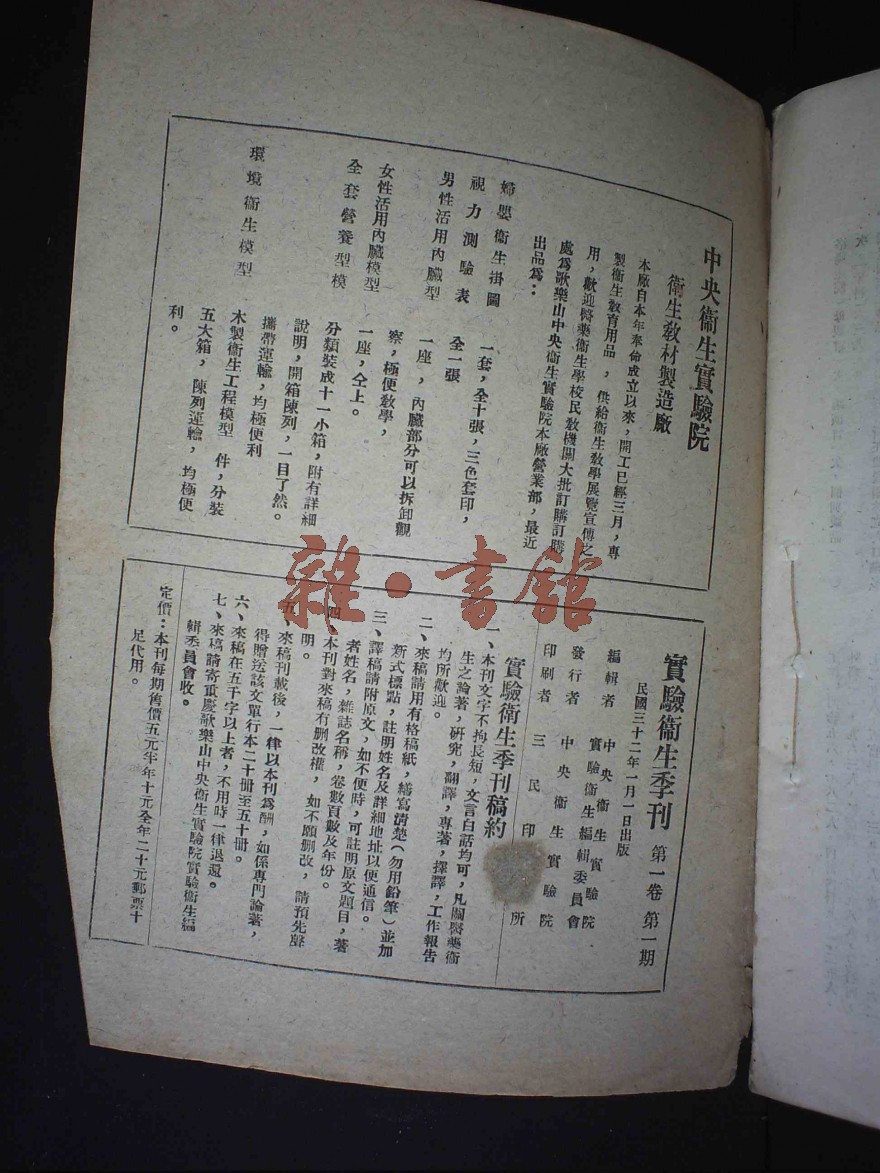 中央衞生實驗院
衞生敎材製造廠
本廠自本年奉命成立以來，開工已經三月，專
製衞生敎育用品，供給衞生敎學展覽宣傳之
用，歡迎醫藥衞生學校民敎機關大批訂購訂購
處爲歌樂山中央衞生實驗院本廠營業部，最近
出品爲：
婦嬰衞生掛圖　一套，全十張，三色套印，
視力測驗表　全一張
男性活用內臟型　一座，內臟部分可以拆卸觀
察，極便敎學，
女性活用內臟模型　一座，仝上。
全套營養型模　分類裝成十一小箱，附有詳細
說明，開箱陳列，一目了然。
攜帶運輸，均極便利
環境衞生模型　木製衞生工程模型　件，分裝
五大箱，陳列運輸，均極便
利。
實驗衞生季刊　第一卷　第一期
民國三十二年一月一日出版
編輯者　中央衞生實驗院
實驗衞生編輯委員會
發行者　中央衞生實驗院
印刷者　三民印　所
實驗衞生季刊稿約
一、本刊文字不拘長短，文言白話均可，凡關醫藥衞
生之論著，硏究，翻譯，專著，擇譯，工作報告
均所歡迎。
二、來稿請用有格稿紙，繕寫淸楚（勿用鉛筆）並加
新式標點，註明姓名及詳細地址以便通信。
三、譯稿請附原文，如不便時，可註明原文題目，著
者姓名，雜誌名稱，卷數頁數及年份。
四、本刊對來稿有删改權，如不願删改，請預先聲
明。
五、來稿刊載後，一律以本刊爲酬，如係專門論著，
得贈送該文單行本二十冊至五十冊。
六、來稿在五千字以上者，不用時一律退還。
七、來稿請寄重慶歌樂山中央衞生實驗院實驗衞生編
輯委員會收。
定價：本刊每期售價五元半年十元全年二十元郵票十
足代用。
雜·書館